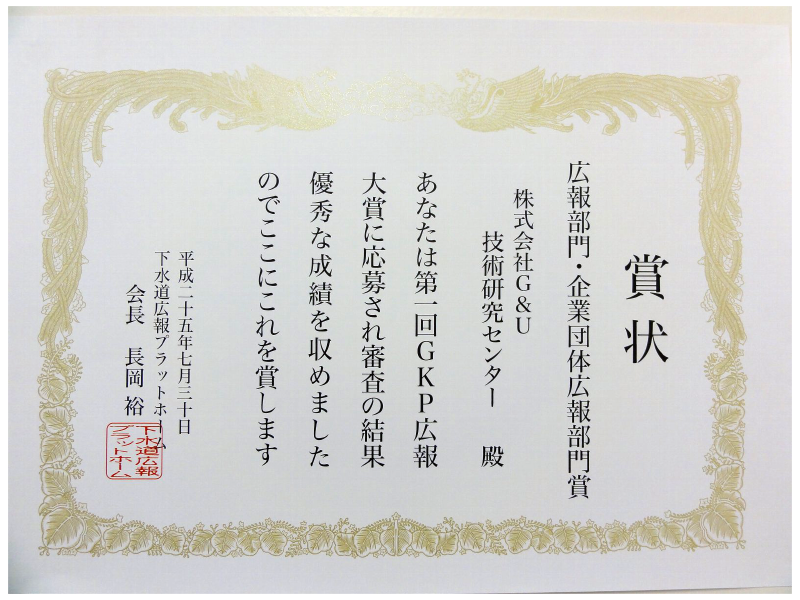 賞状
広報部門・企業団体広報部門賞
株式会社G&U
技術研究センター 殿
あなたは第一回GKP広報
大賞に応募され審査の結果
優秀な成績を収めました
のでここにこれを賞します
平成二十五年七月三十日
下水道広報プラットホーム
会長 長岡 裕
下水道広報
プラットホーム